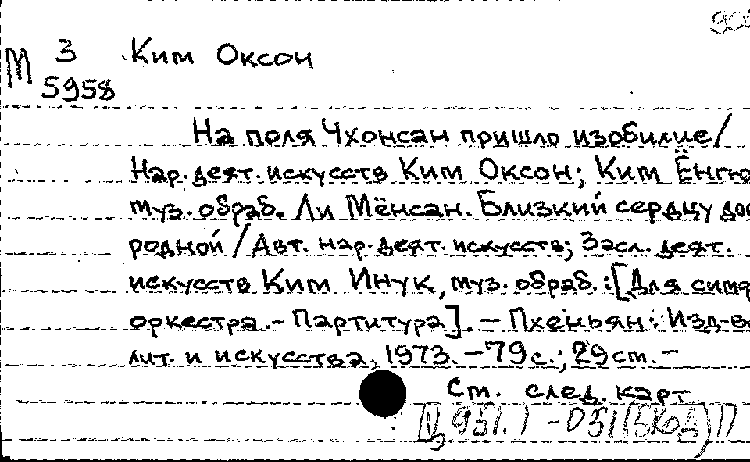 908
М 3 Ким Оксон
5958
На поля Чхонсан пришло изобилие/
Нар. деят. искусств Ким Оксон; Ким Ёнгю
муз. обраб. Ли Мёнсан. Близкий сердцу дом
родной/Авт. нар. деят. искусств; Засл. деят.
искусств Ким Инук, муз. обраб.:[Для симф
оркестра.-Партитура].-Пхеньян: Изд-во
лит. и искусства, 1973.-79с.; 29см.-
См. след. карт